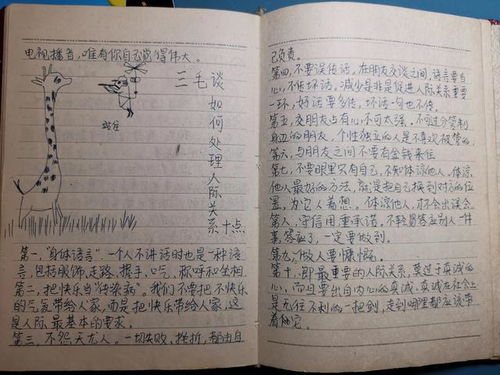 电视播音，唯有你自己觉得伟大。
三毛谈如何处理人际关系十点
第一，"身体语言"。一个人不讲话时也是一种语
言，包括服饰、走路、握手、口气、称呼和坐相
第二，把快乐当"传染病"。我们不要把不快乐
的气氛带给人家，而是把快乐带给人家，这
是人际最基本的要求。
第三，不怨天尤人。一切失败、挫折，都由自
己负责。
第四，不要误传话，在朋友交谈间，语言要当
心，不传坏话，减少是非是促进人际关系重要
一环，好话要多传，坏话一句也不传。
第五，交朋友占有心不可太强，不可过分管制
身边的朋友，个性独立的人是不喜欢被管的。
第六，与朋友之间不要有金钱来往
第七，不要眼里只有自己，不知体谅他人。体谅
他人最好的方法，就是把自己换到对方的位
置，为它人着想。体谅他人，打不会出误会。
第八，守信用重承诺。不轻易答应别人一件
事，答应了，一定要做到。
第九，做人要慷慨。
第十，即最重要的人际关系，莫过于真诚的
心，而且要出自内心的真诚，真诚在社会上
是无往不利的一把剑，走到哪里都应该带
着它。